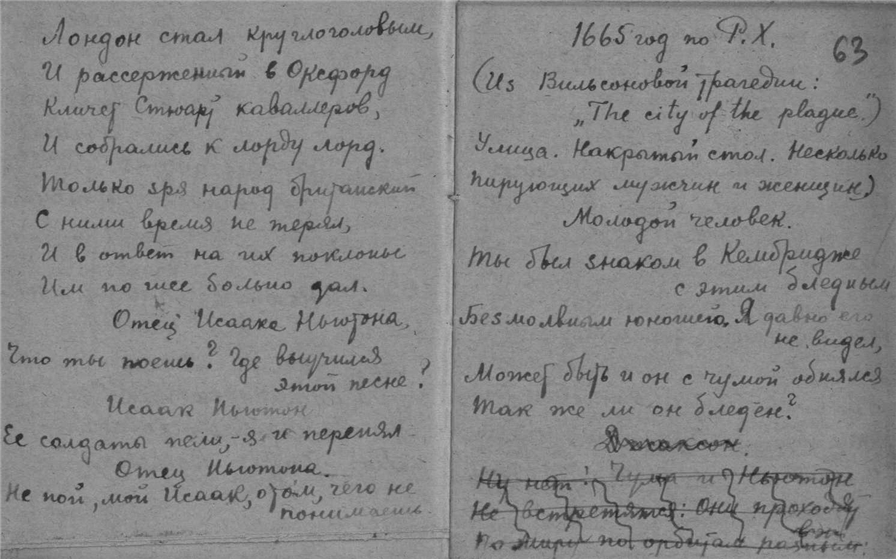 Лондон стал круглоголовым,
И рассерженный в Оксфорд
Кличет Стюарт каваллеров,
И собрались к лорду лорд.
Только зря народ британский
С ними время не терял,
И в ответ на их поклоны
Им по шее больно дал.
Отец Исаака Ньютона.
Что ты поешь? Где выучился
этой песне?
Исаак Ньютон
Ее солдаты пели,-я и перенял
Отец Ньютона.
Не пой, мой Исаак, о том, чего не
понимаешь.
1665 год по Р.Х.
63
(Из Вильсоновой трагедии:
„The city of the plague.")
Улица. Накрытый стол. Несколько
пирующих мужчин и женщин)
Молодой человек.
Ты был знаком в Кембридже
с этим бледным
Безмолвным юношей. Я давно его
не видел,
Может быть и он с чумой обнялся
Так же ли он бледен?
Джаксон.
Ну нет! Чума и Ньютон
Не встретятся: Они проходят
По миру по орбитам разным.